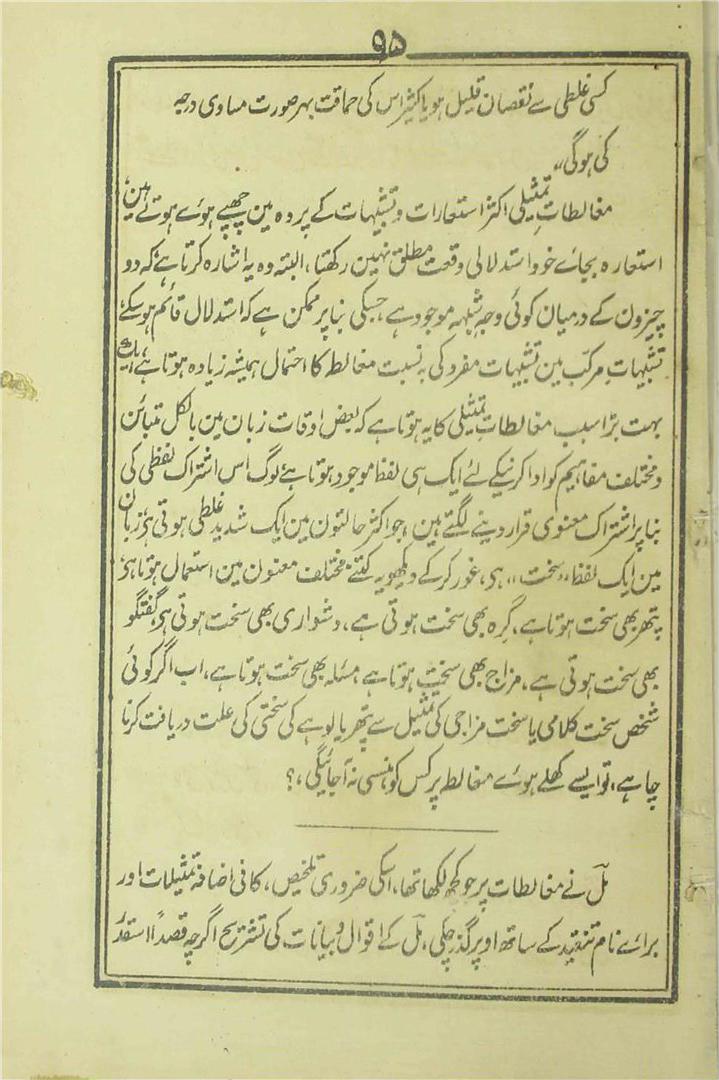 ۹۵
کسی غلطی سے نقصان قلیل ہو یا کثیر اس کی حماقت بہر صورت مساوی درجہ
کی ہوگی،،
مغالطاتِ تمثیلی اکثر استعارات و تشبیہات کے پردہ مین چھپے ہوئے ہوتے ہین،
استعارہ بجائے خود استدلالی وقعت مطلق نہین رکھتا، البتہ وہ یہ اشارہ کرتا ہے کہ دو
چیزون کے درمیان کوئی وجہ شبہہ موجود ہے، جسکی بنا پر ممکن ہے کہ استدلال قائم ہو سکے،
تشبیہاتِ مرکب مین تشبیہات مفرد کی بہ نسبت مغالطہ کا احتمال ہمیشہ زیادہ ہوتا ہے، ایک
بہت بڑا سبب مغالطاتِ تمثیلی کا یہ ہوتا ہے کہ بعض اوقات زبان مین بالکل متبائن
و مختلف مفاہیم کو ادا کرنیکے لئے ایک ہی لفظ موجود ہوتا ہے لوگ اس اشتراک لفظی کی
بنا پر اشتراک معنوی قرار دینے لگتے ہین، جو اکثر حالتون مین ایک شدید غلطی ہوتی ہی، زبان
مین ایک لفظ ،،سخت،، ہی، غور کرکے دیکھو یہ کتنے مختلف معنون مین استعمال ہوتا ہی،
پتھر بھی سخت ہوتا ہے، گرہ بھی سخت ہوتی ہے، دشواری بھی سخت ہوتی ہی، گفتگو
بھی سخت ہوتی ہے، مزاج بھی سخت ہوتا ہے مسئلہ بھی سخت ہوتا ہے، اب اگر کوئی
شخص سخت کلامی یا سخت مزاجی کی تمثیل سے پتھر یا لوہے کی سختی کی علت دریافت کرنا
چاہے، تو ایسے کھلے ہوئے مغالطہ پر کس کو ہنسی نہ آجائیگی،؟
مل نے مغالطات پر جو کچھ لکھا تھا، اسکی ضروری تلخیص، کافی اضافہ تمثیلات اور
برائے نام تنقید کے ساتھ اوپر گذر چکی، مل کے اقوال و بیانات کی تشریح اگرچہ قصداً اسقدر